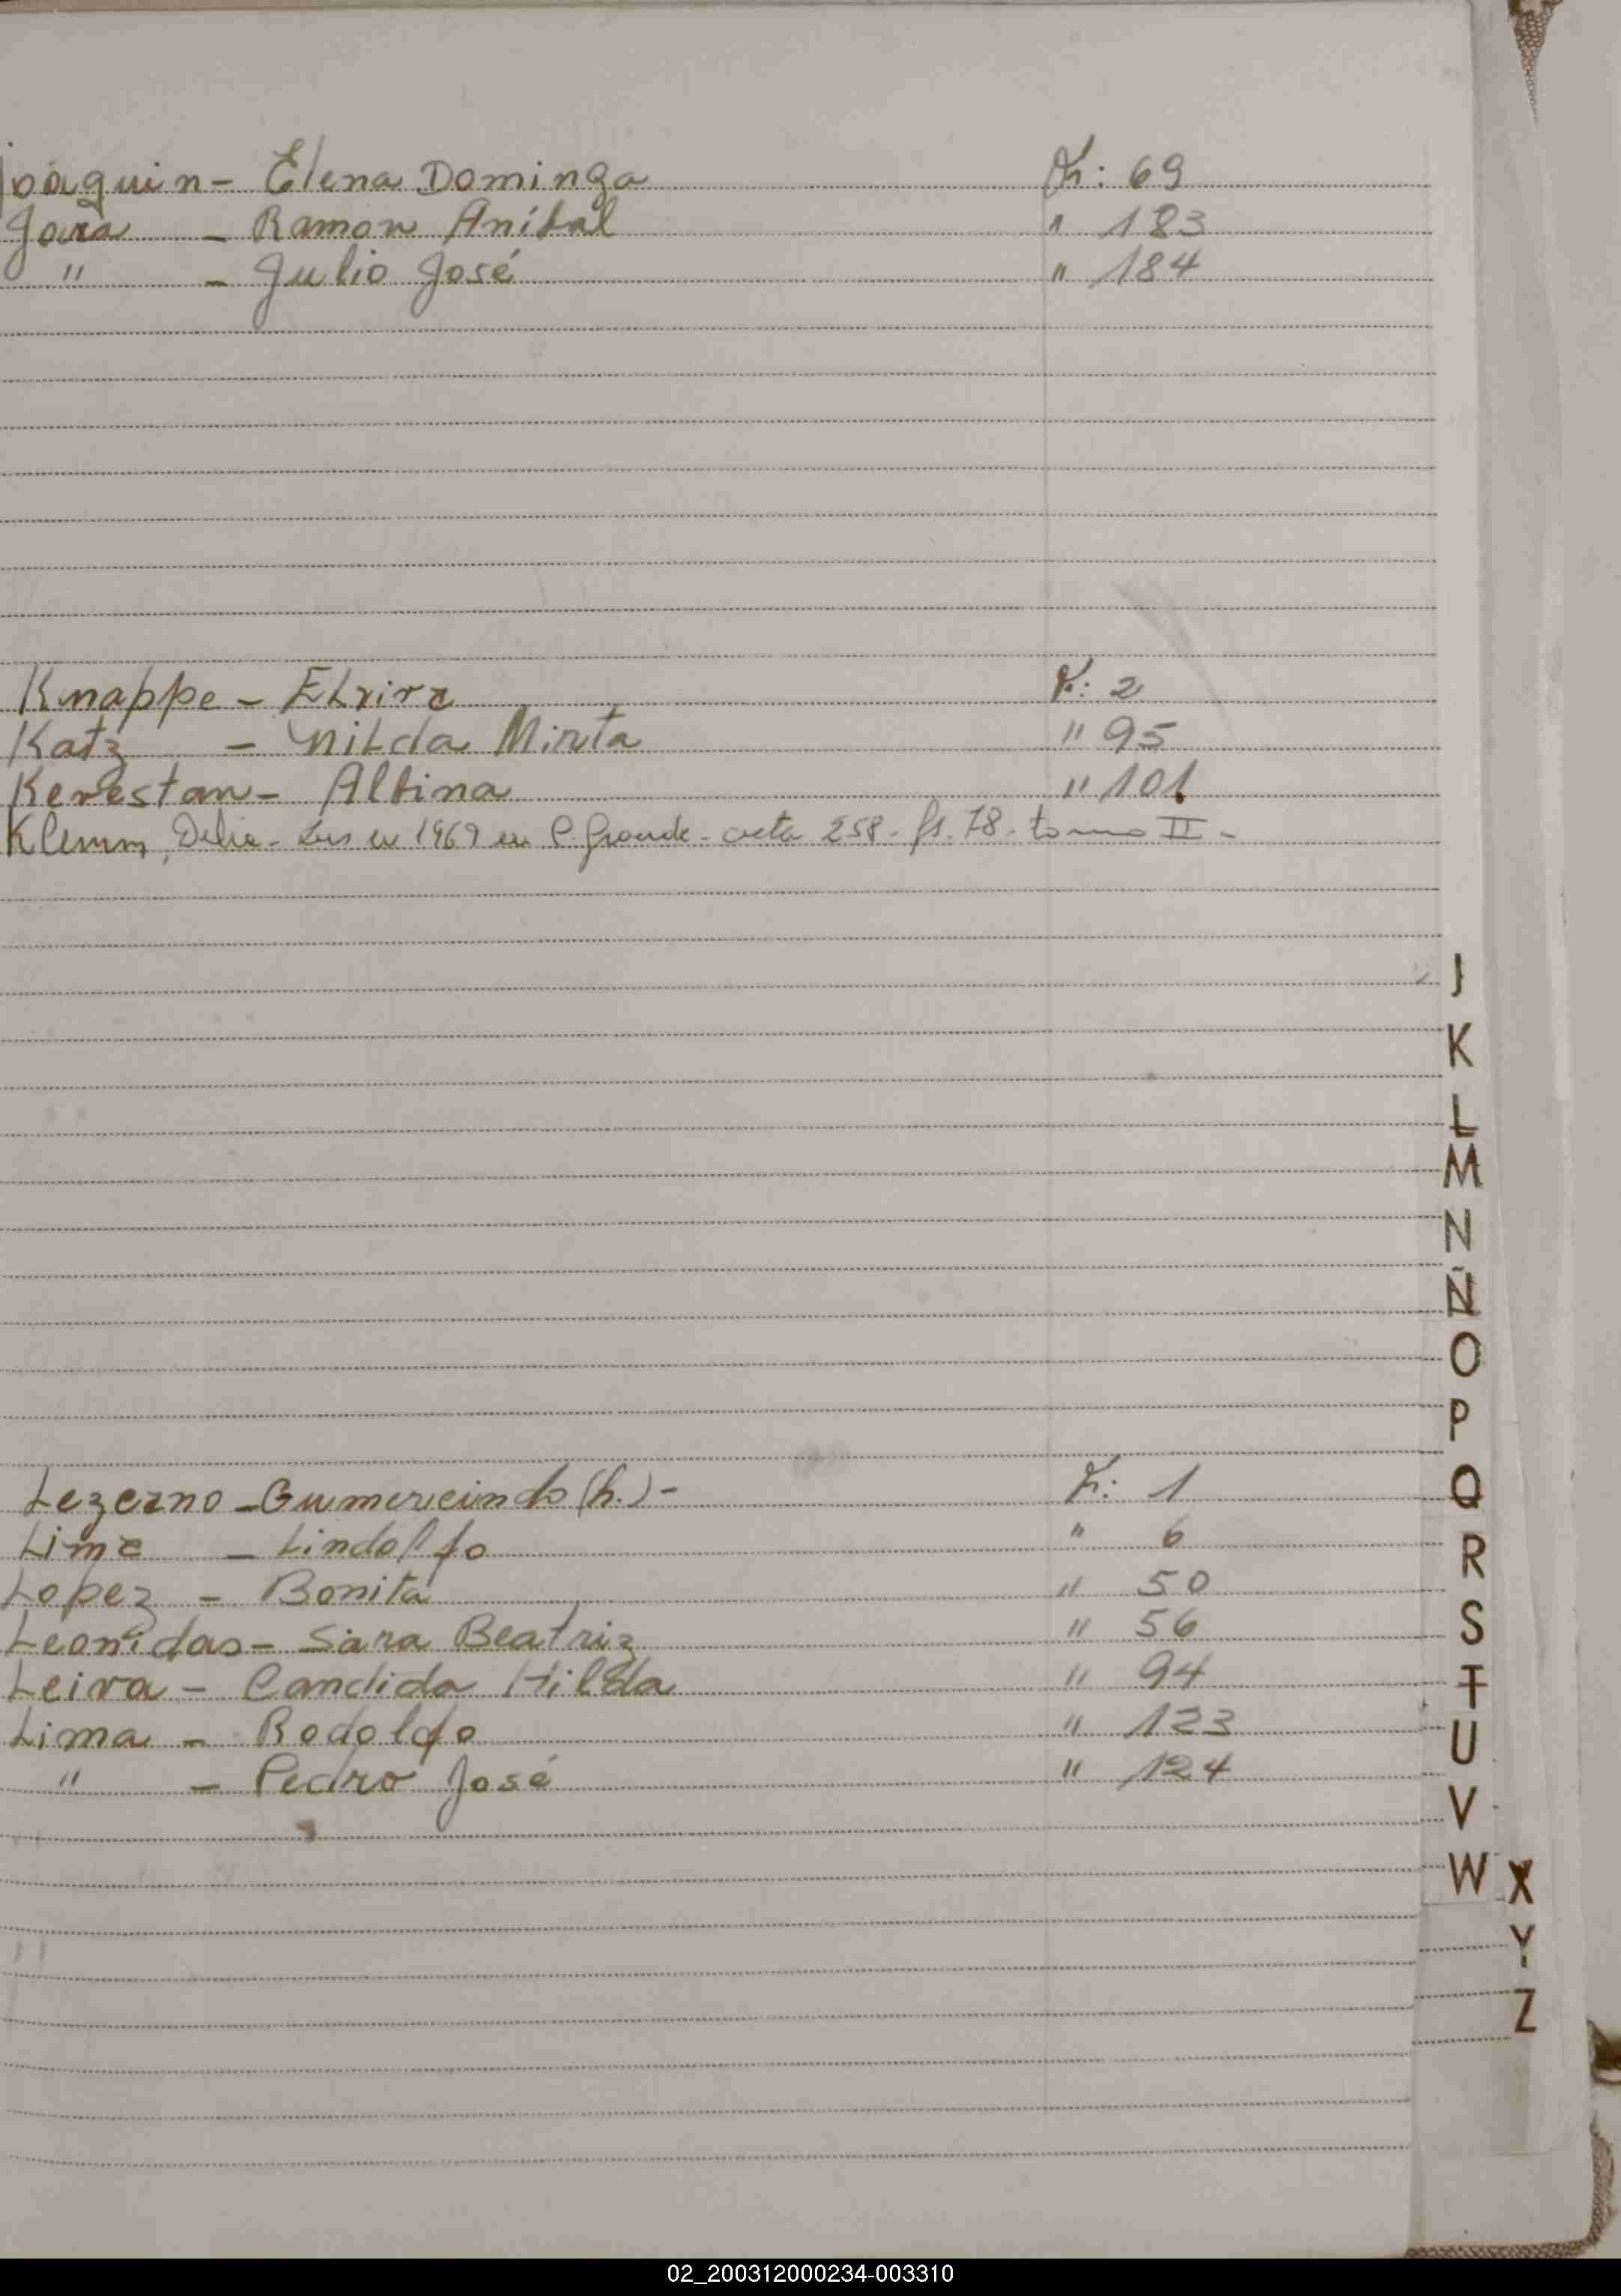 Joaquin - Elena Dominga Fº: 69
Jara - Ramon Anibal " 183
" - Julio José " 184
Knappe - Elvira Fº: 2
Katz - Nilda Mirta " 95
Kerestan - Albina " 101
Klemm, Delia - en 1969 en P. Grande - acta 258 - fs. 78 - tomo II -
J
K
L
M
N
Ñ
O
P
Lezcano - Gumercindo (h.) - Fº: 1
Lima - Lindolfo " 6
Lopez - Bonita " 50
Leonidas - Sara Beatriz " 56
Leiva - Candida Hilda " 94
Lima - Rodolfo " 123
" - Pedro José " 124
Q
R
S
T
U
V
W X
Y
Z
02_200312000234-003310